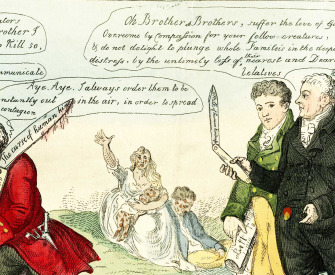 Brother I
Kill so,
mmunicate
Oh Brothers Brothers, suffer the love of G
Overcome by Compassion for your fellow creatures,
& do not delight to plunge whole Families in the deep
distress, by the untimely loss of their nearest and Dear
Relatives
Aye Aye. I always order them to be
onstantly cut in the air, in order to spread
contagion
The curse of human